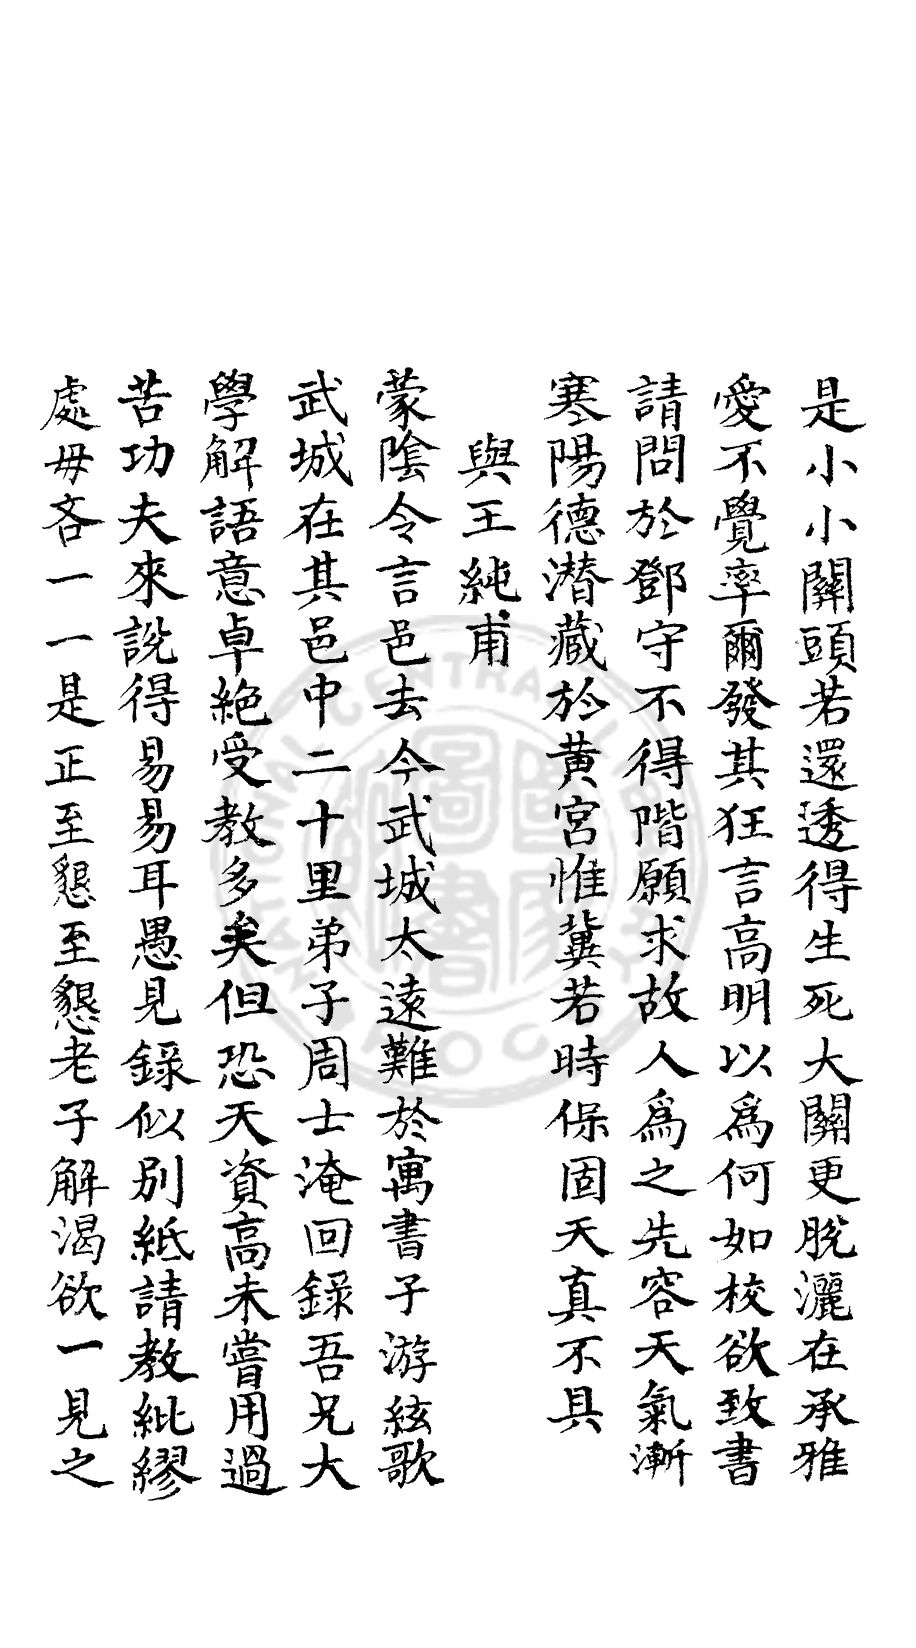 是小小關頭若還透得生死大關更脫灑在承雅
愛不覺率爾發其狂言高明以爲何如校欲致書
請問於鄧守不得階願求故人爲之先容天氣漸
寒陽德潜藏於黄宮惟冀若時保固天真不具
與王純甫
蒙陰令言邑去今武城太遠難於寓書子游絃歌
武城在其邑中二十里弟子周士淹回錄吾兄大
學解語意卓絶受教多矣但恐天資高未嘗用過
苦功夫來說得易易耳愚見錄似別紙請教紕繆
處毋吝一一是正至懇至懇老子解渴欲一見之
CENTRAL